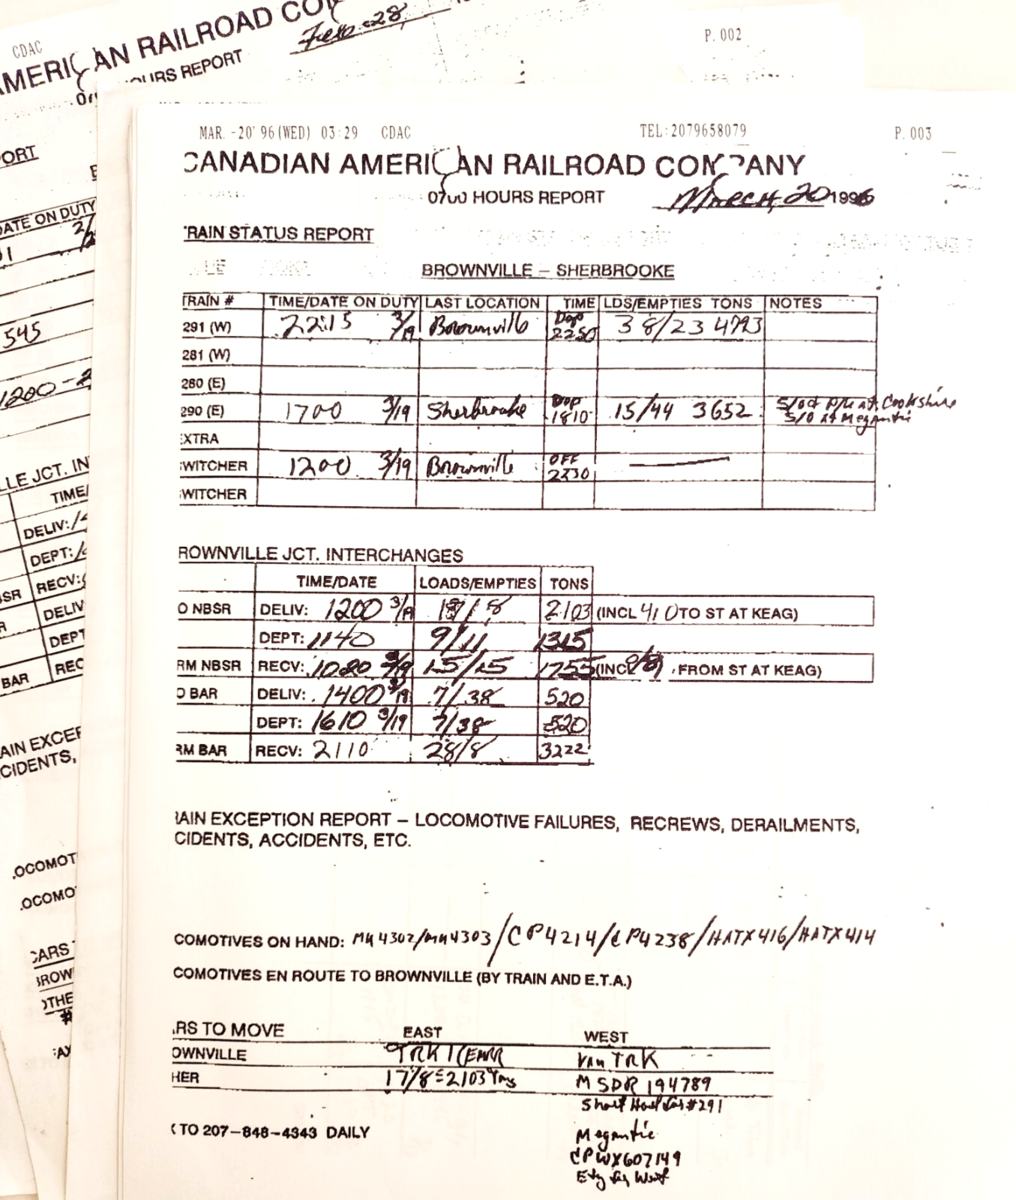 CDAC
P. 002
AMERICAN RAILROAD CO
Feb. 28,
OURS REPORT
ORT
DATE ON DUTY
545
1200-2
LLE JCT. IN
TIME/
DELIV:
DEPT:
SR RECV:
R DELIV
DEPT
BAR REC
AIN EXCEP
CIDENTS,
OCOMOT
OCOMO
CARS
BROW
OTHE
MAR. -20' 96(WED) 03:29 CDAC TEL:2079658079 P. 003
CANADIAN AMERICAN RAILROAD COMPANY
0700 HOURS REPORT March, 20 1996
TRAIN STATUS REPORT
BROWNVILLE – SHERBROOKE
TRAIN # TIME/DATE ON DUTY LAST LOCATION TIME LDS/EMPTIES TONS NOTES
291 (W) 2215 3/19 Brownville Dep 2250 38/23 4793
281 (W)
280 (E)
290 (E) 1700 3/19 Sherbrooke Dep 1810 15/44 3652 S/O & P/U at Cookshire
S/O at Megantic
EXTRA
SWITCHER 1200 3/19 Brownville OFF 2230
SWITCHER
ROWNVILLE JCT. INTERCHANGES
TIME/DATE LOADS/EMPTIES TONS
O NBSR DELIV: 1200 3/19 18/8 2103 (INCL 410 TO ST AT KEAG)
DEPT: 1140 9/11 1315
RM NBSR RECV: 1020 3/19 15/15 1755 (INCL FROM ST AT KEAG)
O BAR DELIV: 1400 3/19 7/38 520
DEPT: 1610 3/19 7/38 520
RM BAR RECV: 2110 28/8 3222
RAIN EXCEPTION REPORT – LOCOMOTIVE FAILURES, RECREWS, DERAILMENTS,
CIDENTS, ACCIDENTS, ETC.
COMOTIVES ON HAND: MK4302/MK4303/CP4214/CP4238/HATX416/HATX414
COMOTIVES EN ROUTE TO BROWNVILLE (BY TRAIN AND E.T.A.)
RS TO MOVE EAST WEST
OWNVILLE TRK 1 Van TRK
HER 17/8=2103 Tons MSDR 194789
Short Haul for #291
( TO 207–848–4343 DAILY Megantic
CPWX607149
Ety for West